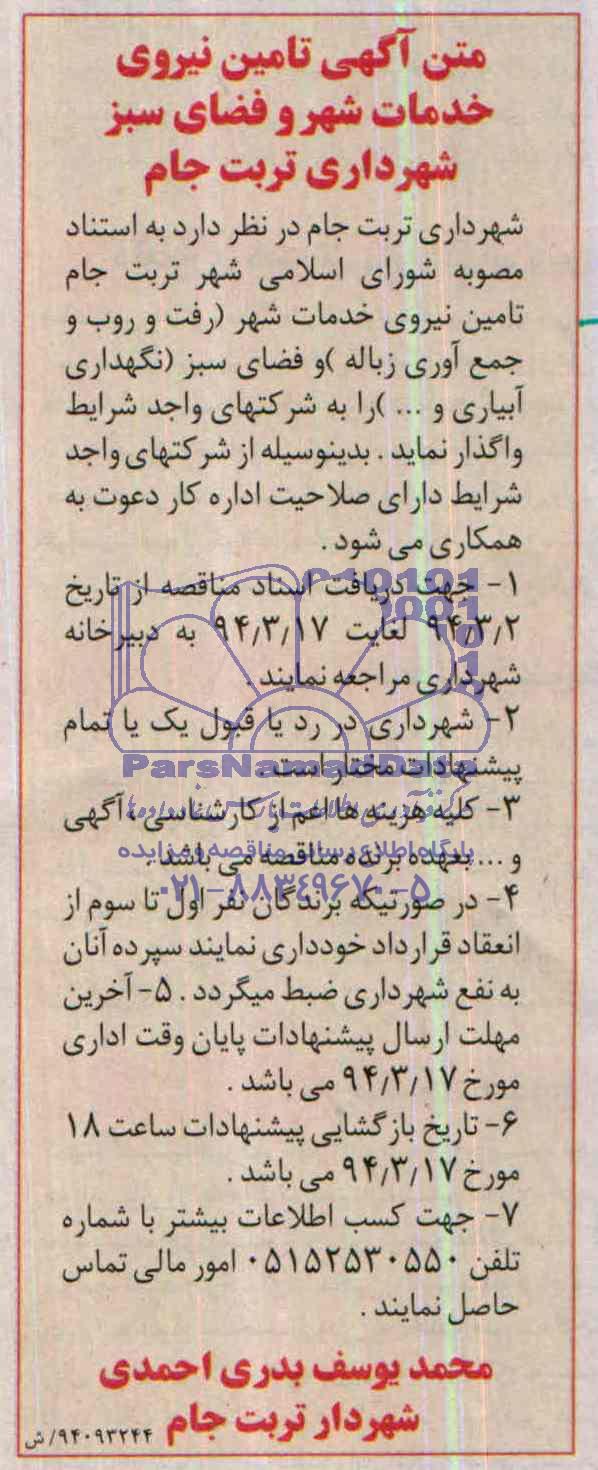 متن آگهی تامین نیروی
خدمات شهر و فضای سبز
شهرداری تربت جام
شهرداری تربت جام در نظر دارد به استناد
مصوبه شورای اسلامی شهر تربت جام
تامین نیروی خدمات شهر (رفت و روب و
جمع آوری زباله )و فضای سبز (نگهداری
آبیاری و ... )را به شرکتهای واجد شرایط
واگذار نماید . بدینوسیله از شرکتهای واجد
شرایط دارای صلاحیت اداره کار دعوت به
همکاری می شود .
۱- جهت دریافت اسناد مناقصه از تاریخ
۹۴/۳/۲ لغایت ۹۴/۳/۱۷ به دبیرخانه
شهرداری مراجعه نمایند .
۲- شهرداری در رد یا قبول یک یا تمام
پیشنهادات مختار است .
ParsNamadData
۳- کلیه هزینه ها اعم از کارشناسی ، آگهی
و ... بعهده برنده مناقصه می باشد .
پایگاه اطلاع رسانی مناقصه و مزایده
۰۲۱-۸۸۳۴۹۶۷۰-۵
۴- در صورتیکه برندگان نفر اول تا سوم از
انعقاد قرارداد خودداری نمایند سپرده آنان
به نفع شهرداری ضبط میگردد . ۵- آخرین
مهلت ارسال پیشنهادات پایان وقت اداری
مورخ ۹۴/۳/۱۷ می باشد .
۶- تاریخ بازگشایی پیشنهادات ساعت ۱۸
مورخ ۹۴/۳/۱۷ می باشد .
۷- جهت کسب اطلاعات بیشتر با شماره
تلفن ۰۵۱۵۲۵۳۰۵۵۰ امور مالی تماس
حاصل نمایند .
محمد یوسف بدری احمدی
شهردار تربت جام
۹۴۰۹۳۲۴۴/ش